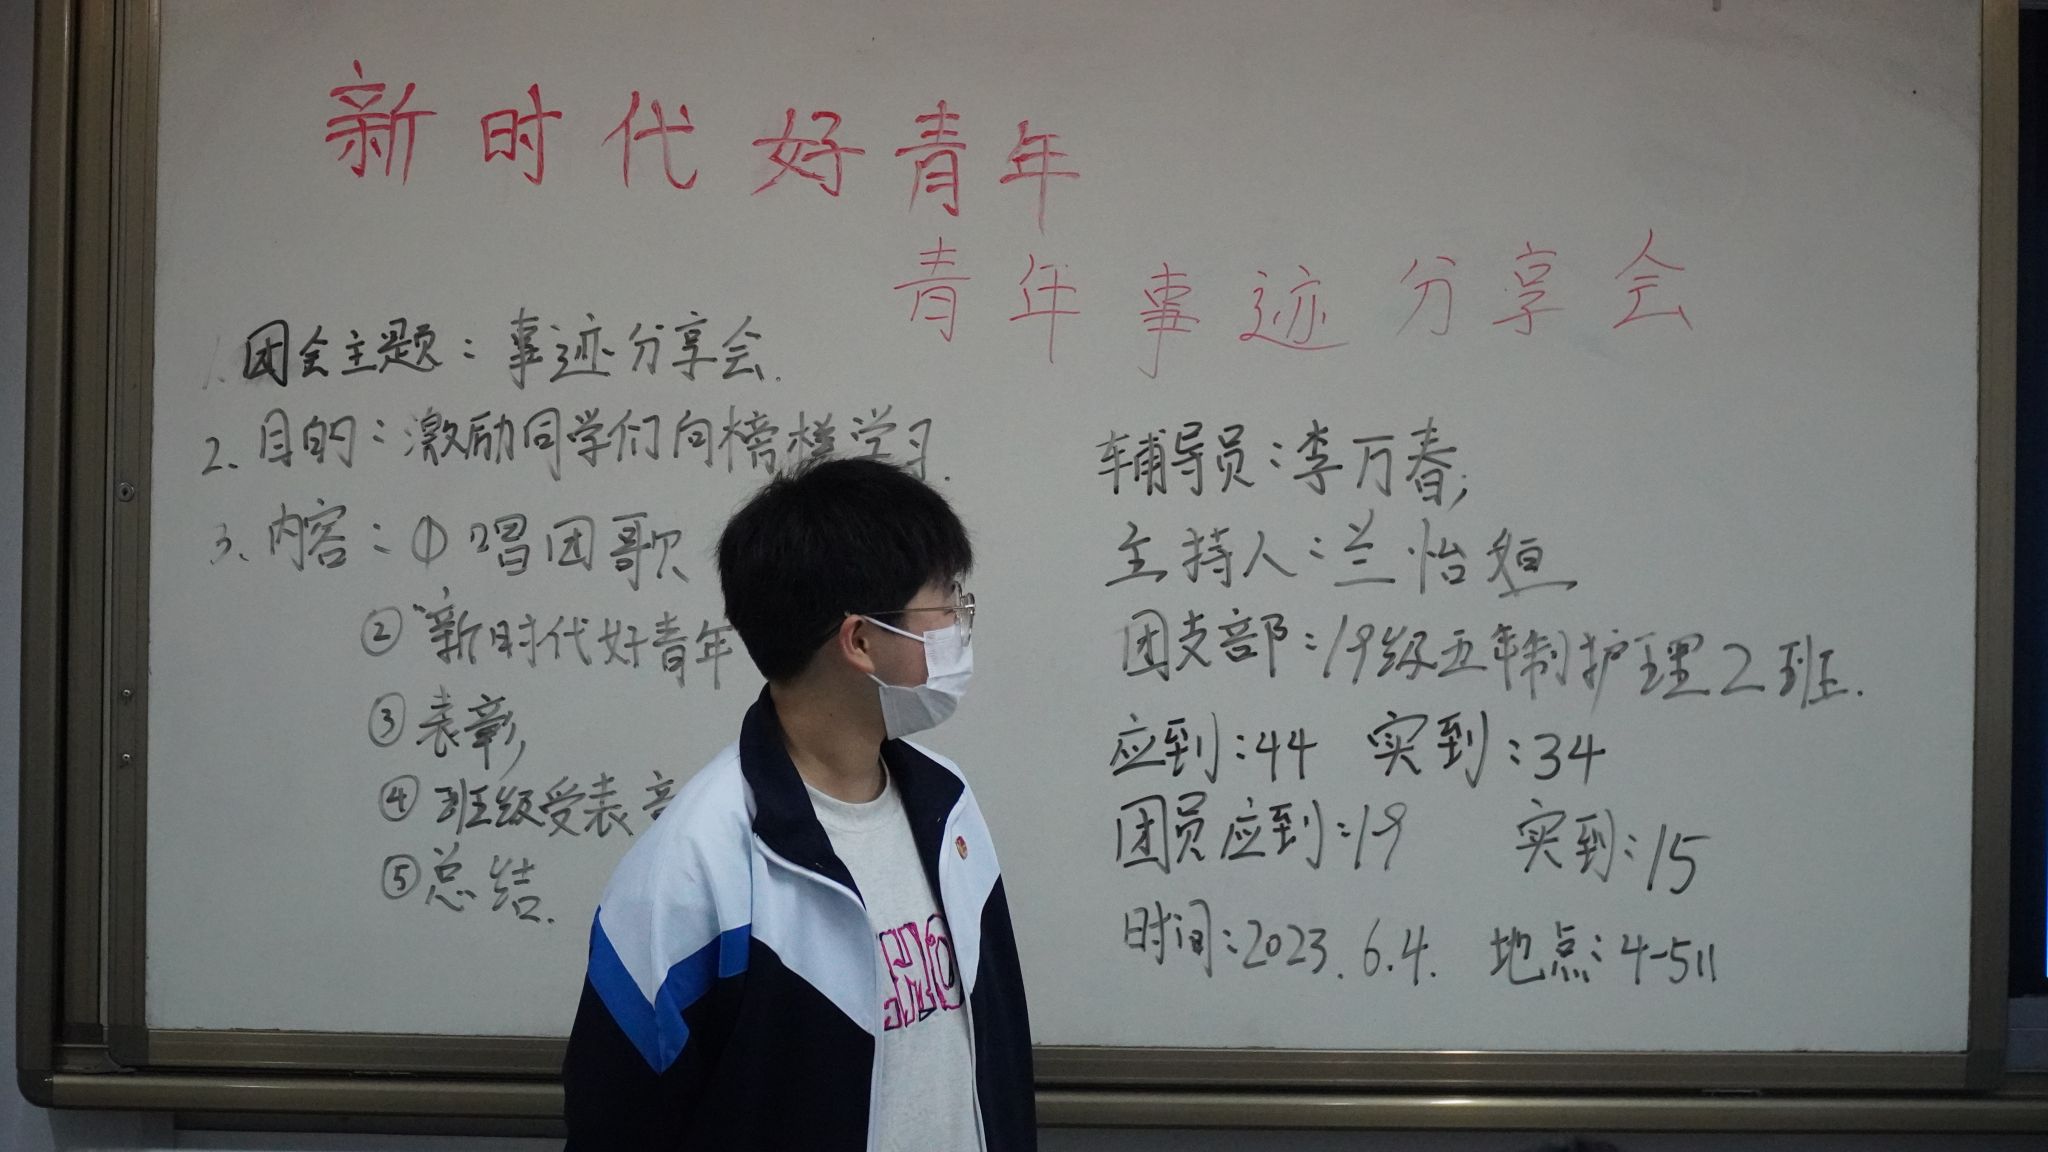 新时代好青年
青年事迹分享会
1.团会主题:事迹分享会.
2、目的:激励同学们向榜样学习.
3、内容:①唱团歌
②"新时代好青年
③表彰
④班级受表
⑤总结.
辅导员:李万春
主持人:兰怡烜
团支部:19级五年制护理2班.
应到:44 实到:34
团员应到:19 实到:15
时间:2023.6.4. 地点:4-511